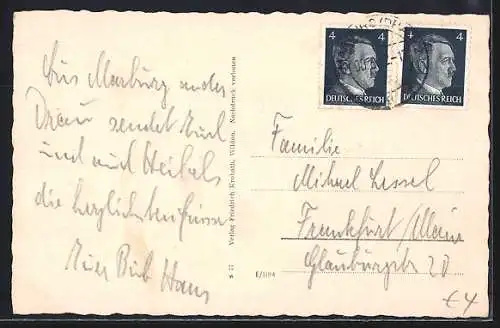 Aus Marburg an der
Drau sendet Euch
und auch
die herzlichsten Grüsse
Euer Bub Hans
Verlag Friedrich Krobath, Wildon. Nachdruck verboten
S 77
E/1194
4 4
DEUTSCHES REICH
4 4
DEUTSCHES REICH
Familie
Michael Lessel
Frankfurt/Main
Glauburgstr 20
£4